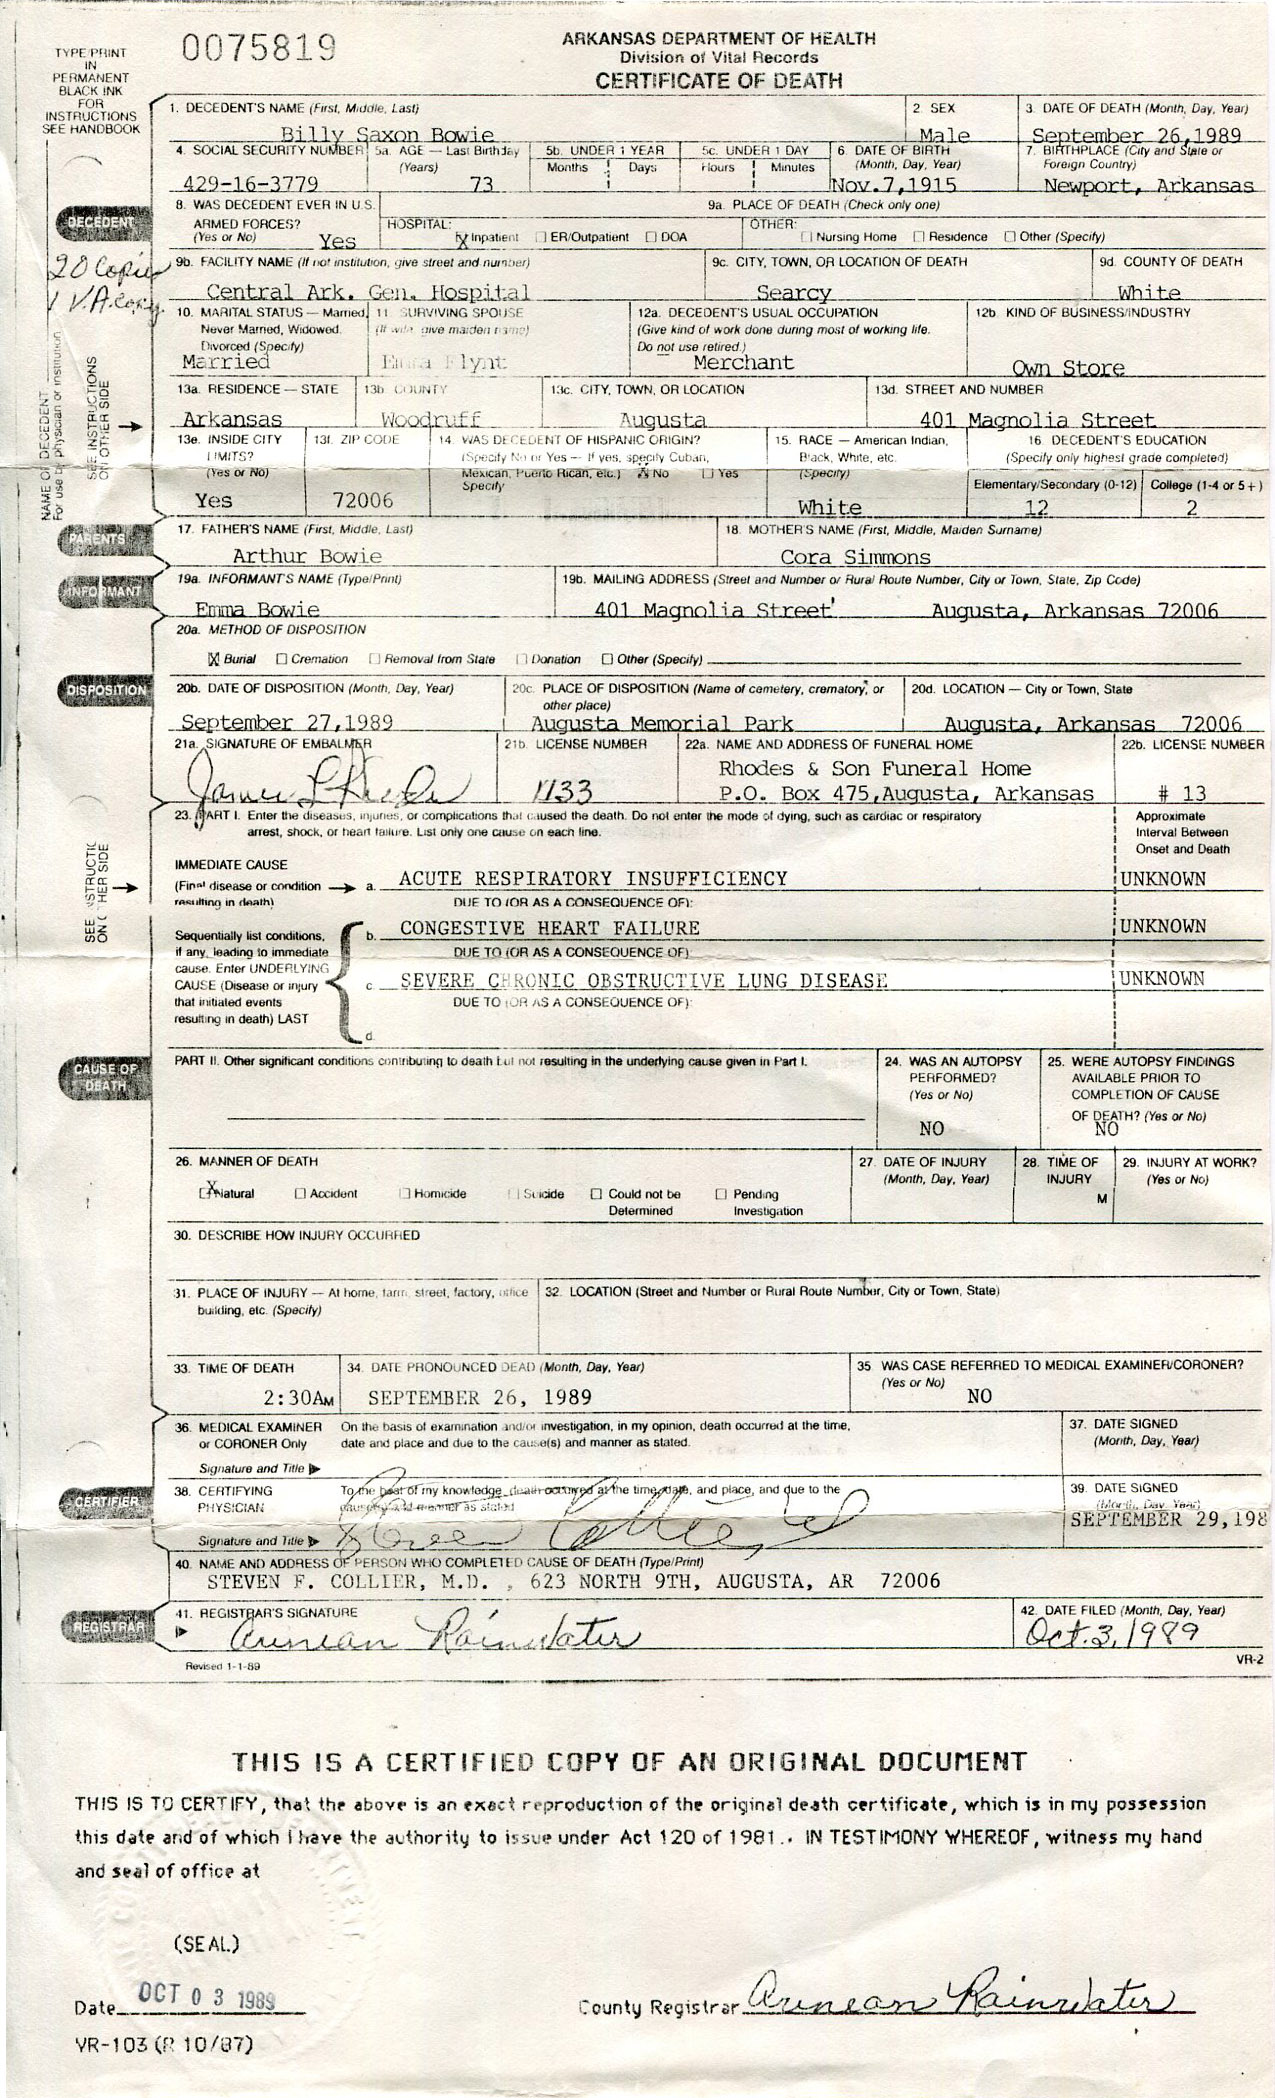 TYPE/PRINT
IN
PERMANENT
BLACK INK
FOR
INSTRUCTIONS
SEE HANDBOOK
0075819
ARKANSAS DEPARTMENT OF HEALTH
Division of Vital Records
CERTIFICATE OF DEATH
1. DECEDENT'S NAME (First, Middle, Last)
Billy Saxon Bowie
2. SEX
Male
3. DATE OF DEATH (Month, Day, Year)
September 26,1989
4. SOCIAL SECURITY NUMBER
429-16-3779
5a. AGE — Last Birthday
(Years)
73
5b. UNDER 1 YEAR
Months Days
5c. UNDER 1 DAY
Hours Minutes
6. DATE OF BIRTH
(Month, Day, Year)
Nov.7,1915
7. BIRTHPLACE (City and State or
Foreign Country)
Newport, Arkansas
DECEDENT
8. WAS DECEDENT EVER IN U.S.
ARMED FORCES?
(Yes or No) Yes
9a. PLACE OF DEATH (Check only one)
HOSPITAL:
X Inpatient ☐ ER/Outpatient ☐ DOA
OTHER:
☐ Nursing Home ☐ Residence ☐ Other (Specify)
20 Copies
1 V.A. copy.
9b. FACILITY NAME (If not institution, give street and number)
Central Ark. Gen. Hospital
9c. CITY, TOWN, OR LOCATION OF DEATH
Searcy
9d. COUNTY OF DEATH
White
10. MARITAL STATUS — Married,
Never Married, Widowed,
Divorced (Specify)
Married
11. SURVIVING SPOUSE
(If wife, give maiden name)
Emma Flynt
12a. DECEDENT'S USUAL OCCUPATION
(Give kind of work done during most of working life.
Do not use retired.)
Merchant
12b. KIND OF BUSINESS/INDUSTRY
Own Store
NAME OF DECEDENT
For use by physician or institution
SEE INSTRUCTIONS
ON OTHER SIDE
13a. RESIDENCE — STATE
Arkansas
13b. COUNTY
Woodruff
13c. CITY, TOWN, OR LOCATION
Augusta
13d. STREET AND NUMBER
401 Magnolia Street
13e. INSIDE CITY
LIMITS?
(Yes or No)
Yes
13f. ZIP CODE
72006
14. WAS DECEDENT OF HISPANIC ORIGIN?
(Specify No or Yes — If yes, specify Cuban,
Mexican, Puerto Rican, etc.) X No ☐ Yes
Specify
15. RACE — American Indian,
Black, White, etc.
(Specify)
White
16. DECEDENT'S EDUCATION
(Specify only highest grade completed)
Elementary/Secondary (0-12) College (1-4 or 5+)
12 2
PARENTS
17. FATHER'S NAME (First, Middle, Last)
Arthur Bowie
18. MOTHER'S NAME (First, Middle, Maiden Surname)
Cora Simmons
INFORMANT
19a. INFORMANT'S NAME (Type/Print)
Emma Bowie
19b. MAILING ADDRESS (Street and Number or Rural Route Number, City or Town, State, Zip Code)
401 Magnolia Street Augusta, Arkansas 72006
20a. METHOD OF DISPOSITION
X Burial ☐ Cremation ☐ Removal from State ☐ Donation ☐ Other (Specify)
DISPOSITION
20b. DATE OF DISPOSITION (Month, Day, Year)
September 27,1989
20c. PLACE OF DISPOSITION (Name of cemetery, crematory, or
other place)
Augusta Memorial Park
20d. LOCATION — City or Town, State
Augusta, Arkansas 72006
21a. SIGNATURE OF EMBALMER
21b. LICENSE NUMBER
1133
22a. NAME AND ADDRESS OF FUNERAL HOME
Rhodes & Son Funeral Home
P.O. Box 475,Augusta, Arkansas
22b. LICENSE NUMBER
# 13
23. PART I. Enter the diseases, injuries, or complications that caused the death. Do not enter the mode of dying, such as cardiac or respiratory
arrest, shock, or heart failure. List only one cause on each line.
Approximate
Interval Between
Onset and Death
SEE INSTRUCTIONS
ON OTHER SIDE
IMMEDIATE CAUSE
(Final disease or condition
resulting in death)
a. ACUTE RESPIRATORY INSUFFICIENCY UNKNOWN
DUE TO (OR AS A CONSEQUENCE OF):
Sequentially list conditions,
if any, leading to immediate
cause. Enter UNDERLYING
CAUSE (Disease or injury
that initiated events
resulting in death) LAST
b. CONGESTIVE HEART FAILURE UNKNOWN
DUE TO (OR AS A CONSEQUENCE OF):
c. SEVERE CHRONIC OBSTRUCTIVE LUNG DISEASE UNKNOWN
DUE TO (OR AS A CONSEQUENCE OF):
d.
CAUSE OF
DEATH
PART II. Other significant conditions contributing to death but not resulting in the underlying cause given in Part I.
24. WAS AN AUTOPSY
PERFORMED?
(Yes or No)
NO
25. WERE AUTOPSY FINDINGS
AVAILABLE PRIOR TO
COMPLETION OF CAUSE
OF DEATH? (Yes or No)
NO
26. MANNER OF DEATH
X Natural ☐ Accident ☐ Homicide ☐ Suicide ☐ Could not be
Determined
☐ Pending
Investigation
27. DATE OF INJURY
(Month, Day, Year)
28. TIME OF
INJURY
M
29. INJURY AT WORK?
(Yes or No)
30. DESCRIBE HOW INJURY OCCURRED
31. PLACE OF INJURY — At home, farm, street, factory, office
building, etc. (Specify)
32. LOCATION (Street and Number or Rural Route Number, City or Town, State)
33. TIME OF DEATH
2:30AM
34. DATE PRONOUNCED DEAD (Month, Day, Year)
SEPTEMBER 26, 1989
35. WAS CASE REFERRED TO MEDICAL EXAMINER/CORONER?
(Yes or No) NO
36. MEDICAL EXAMINER
or CORONER Only
On the basis of examination and/or investigation, in my opinion, death occurred at the time,
date and place and due to the cause(s) and manner as stated.
Signature and Title
37. DATE SIGNED
(Month, Day, Year)
CERTIFIER
38. CERTIFYING
PHYSICIAN
To the best of my knowledge, death occurred at the time, date, and place, and due to the
cause(s) and manner as stated
Signature and Title
Steven Collier
39. DATE SIGNED
(Month, Day, Year)
SEPTEMBER 29,198
40. NAME AND ADDRESS OF PERSON WHO COMPLETED CAUSE OF DEATH (Type/Print)
STEVEN F. COLLIER, M.D. , 623 NORTH 9TH, AUGUSTA, AR 72006
REGISTRAR
41. REGISTRAR'S SIGNATURE
Arinean Rainwater
42. DATE FILED (Month, Day, Year)
Oct. 3, 1989
Revised 1-1-89
VR-2
THIS IS A CERTIFIED COPY OF AN ORIGINAL DOCUMENT
THIS IS TO CERTIFY, that the above is an exact reproduction of the original death certificate, which is in my possession
this date and of which I have the authority to issue under Act 120 of 1981.. IN TESTIMONY WHEREOF, witness my hand
and seal of office at
(SEAL)
Date OCT 03 1989
County Registrar Arinean Rainwater
VR-103 (R 10/87)